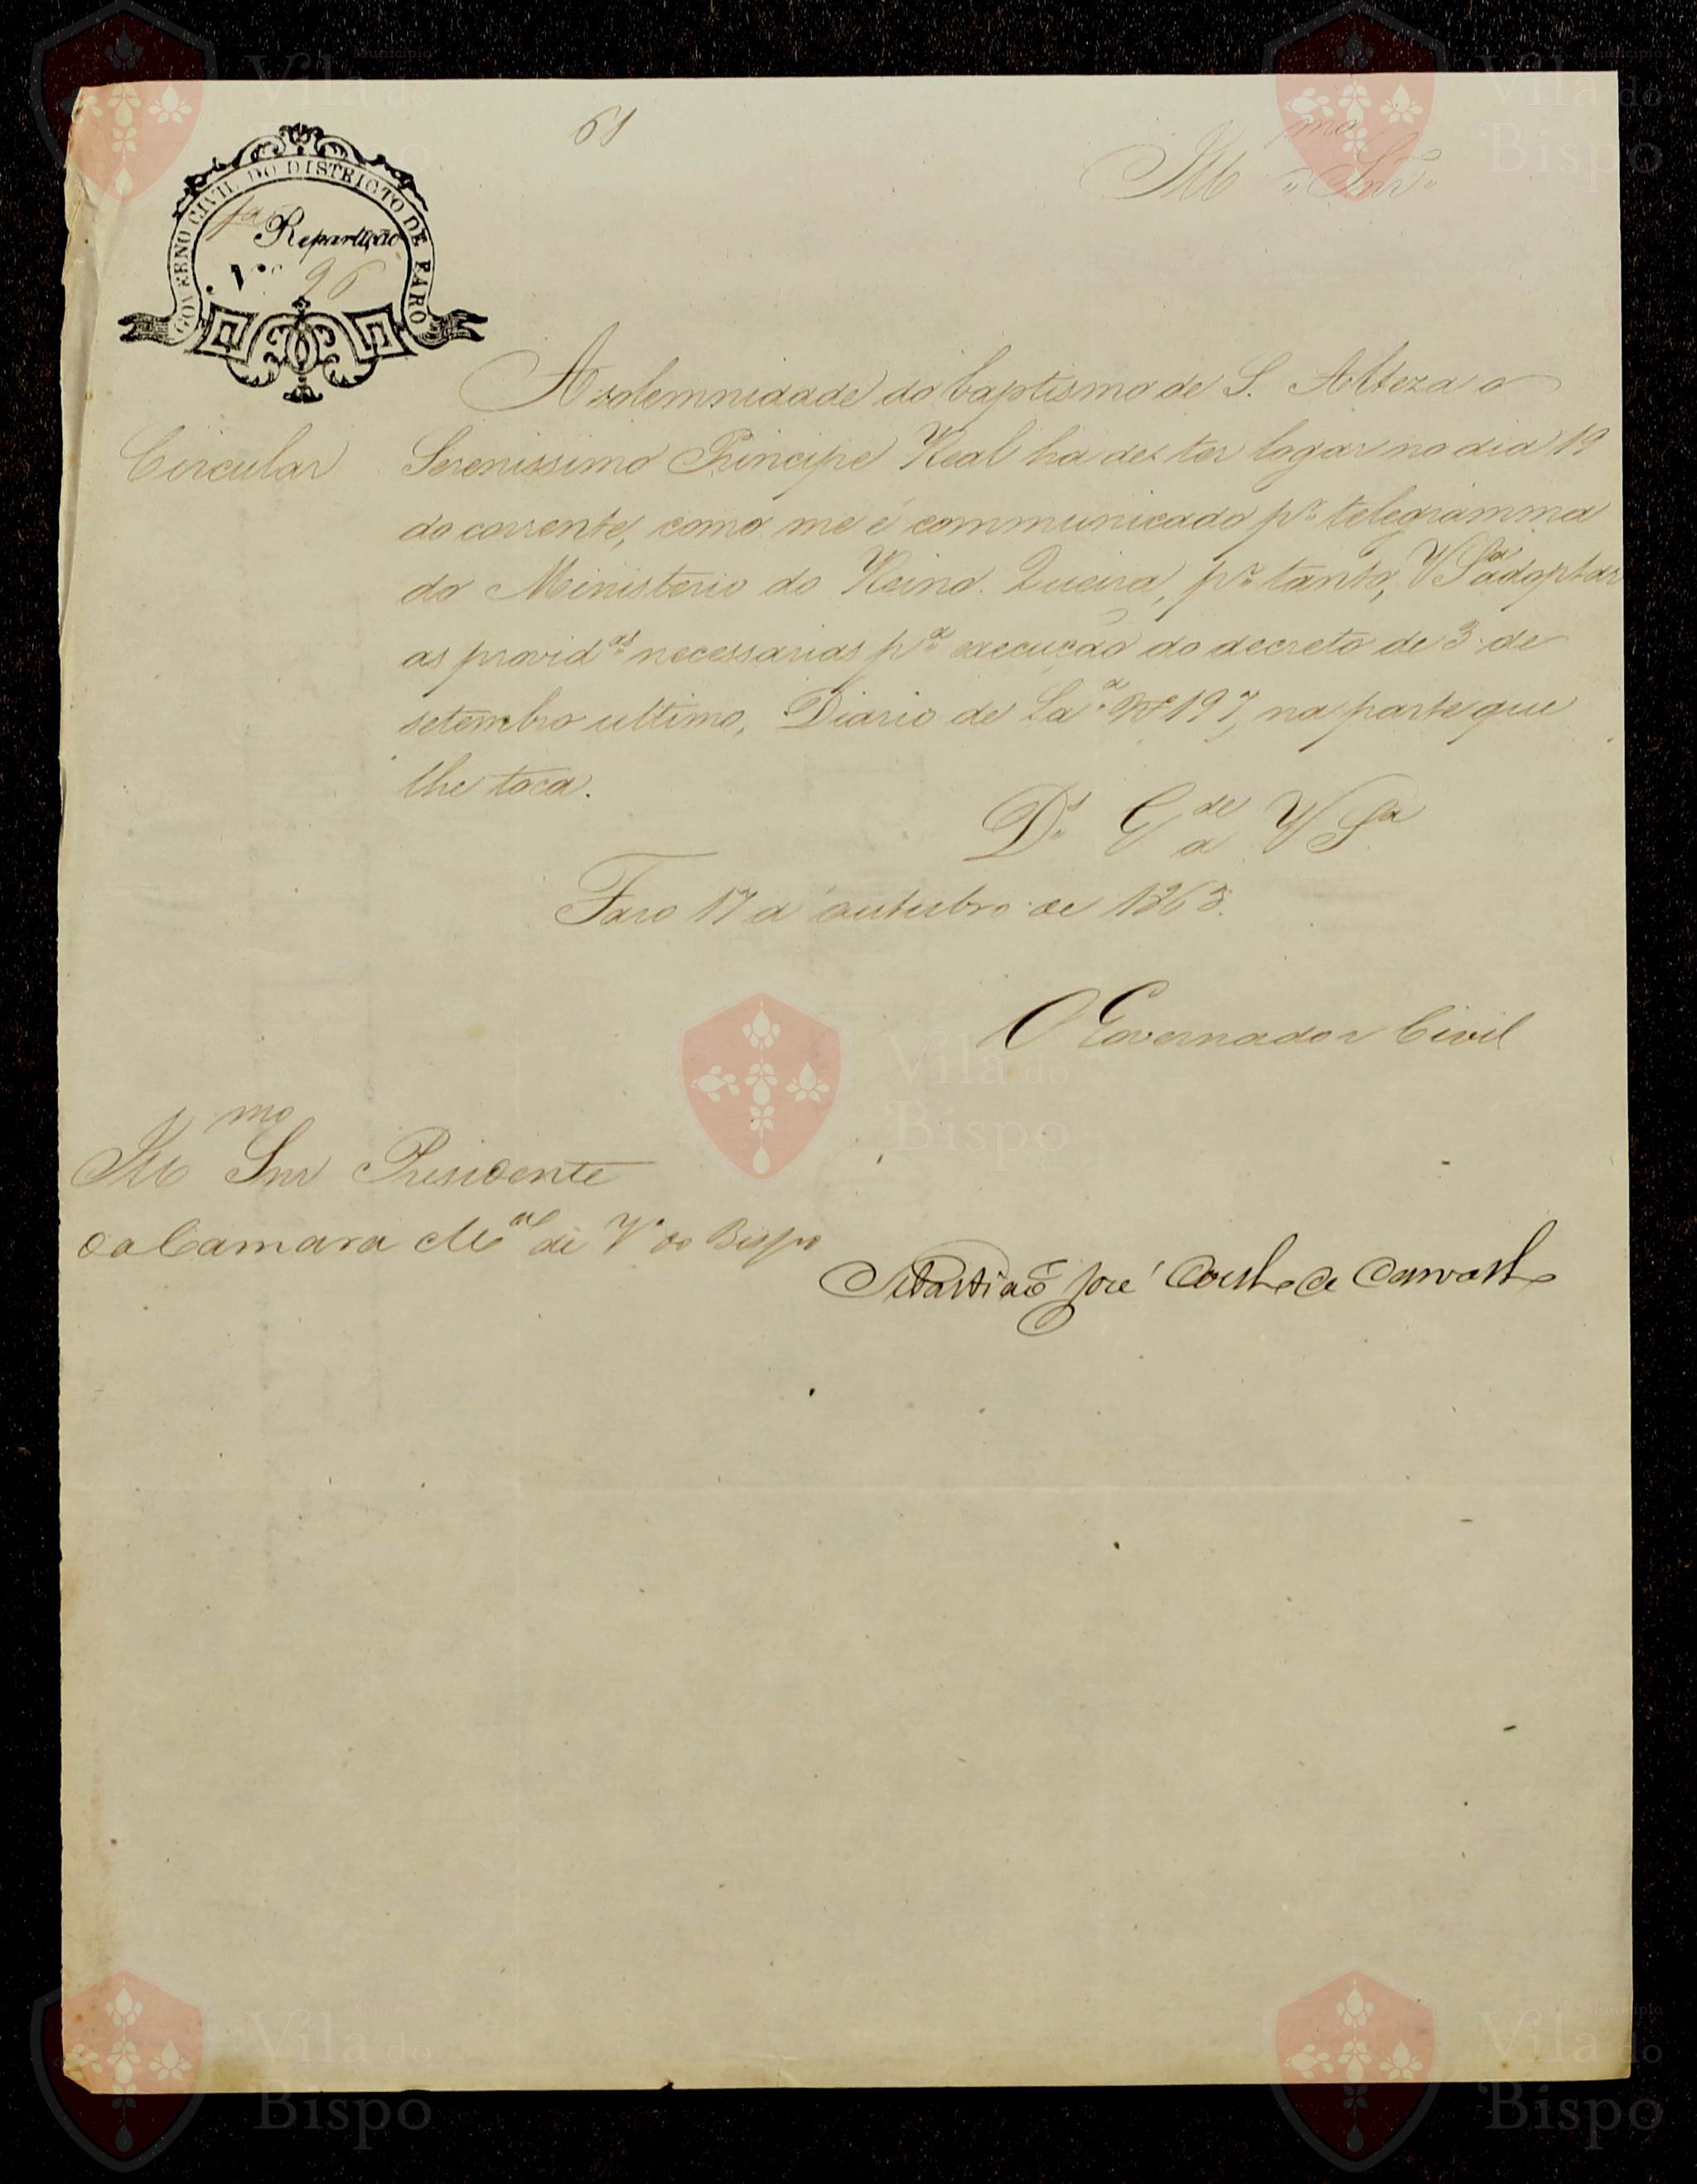 61
Illmo Snr
GOVERNO CIVIL DO DISTRICTO DE FARO
1a Repartição
No 96
Circular
A solemnidade do baptismo de S. Alteza o
Serenissimo Principe Real ha de ter logar no dia 19
do corrente, como me é communicado pr telegramma
do Ministerio do Reino. Queira, pr tanto, VSa adoptar
as providas necessarias pa execução do decreto de 3 de
setembro ultimo, Diario de Lxa No 197, na parte que
lhe toca.
Ds Gde a VSa
Faro 17 d'outubro de 1863.
O Governador Civil
Illmo Snr Presidente
da Camara Mal de Va do Bispo
Sebastião José Coelho de Carvalho
Município
Vila do
Bispo
Município
Vila do
Bispo
Vila do
Bispo
Vila do
Bispo
Município
Vila do
Bispo